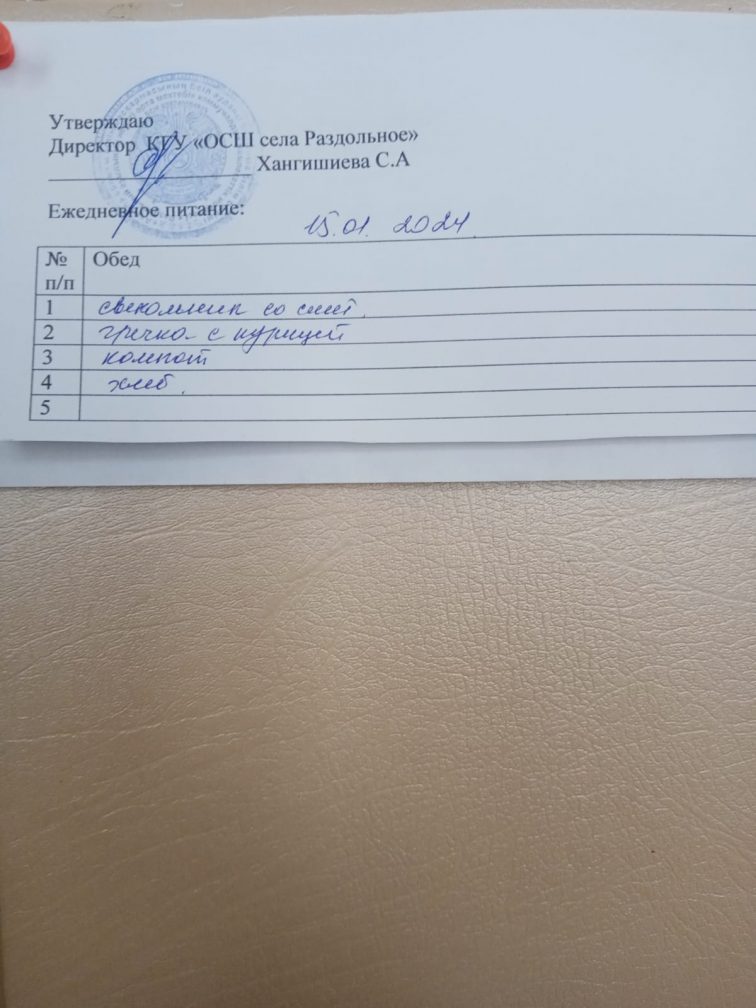 Утверждаю
Директор КГУ «ОСШ села Раздольное»
Хангишиева С.А
Ежедневное питание:
15.01.2024
№ п/п Обед
1 свекольник со смет.
2 гречка с курицей
3 компот
4 хлеб.
5